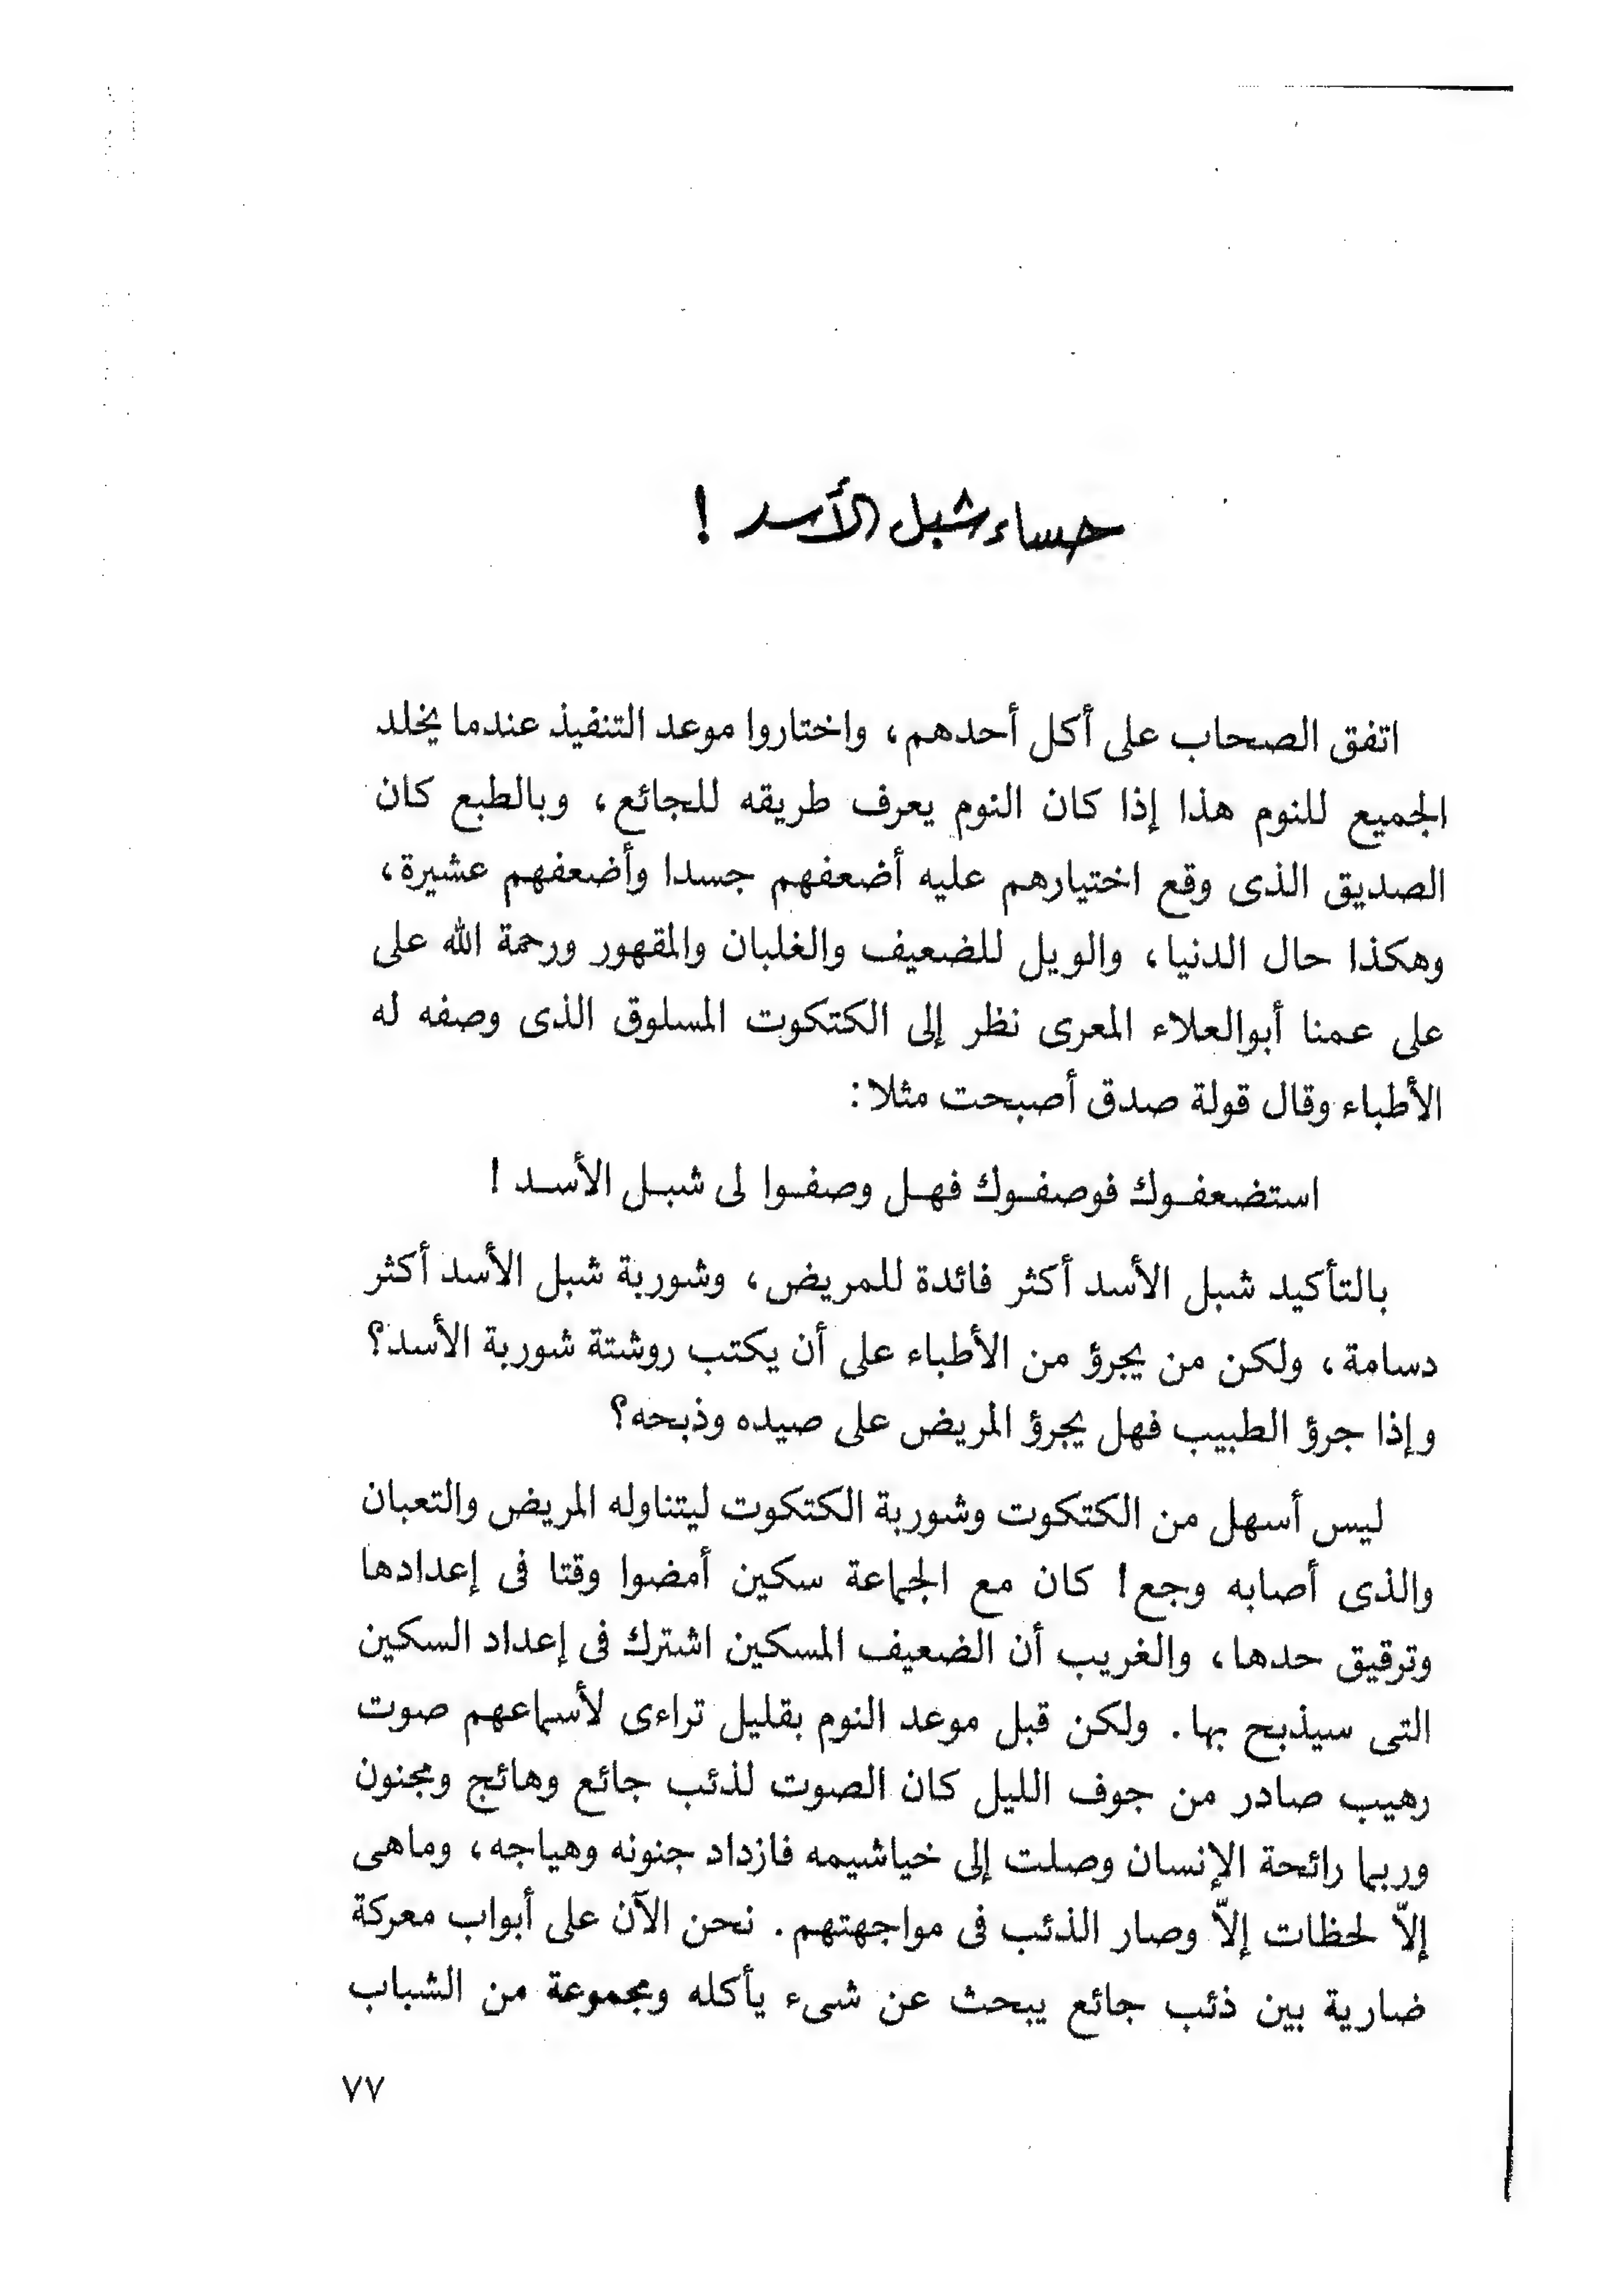 حساء شبل الأسد !
اتفق الصحاب على أكل أحدهم، واختاروا موعد التنفيذ عندما يخلد
الجميع للنوم هذا إذا كان النوم يعرف طريقه للجائع، وبالطبع كان
الصديق الذى وقع اختيارهم عليه أضعفهم جسدا وأضعفهم عشيرة،
وهكذا حال الدنيا، والويل للضعيف والغلبان والمقهور ورحمة الله على
على عمنا أبوالعلاء المعرى نظر إلى الكتكوت المسلوق الذى وصفه له
الأطباء وقال قولة صدق أصبحت مثلا:
استضعفوك فوصفوك فهل وصفوا لى شبل الأسد !
بالتأكيد شبل الأسد أكثر فائدة للمريض، وشوربة شبل الأسد أكثر
دسامة، ولكن من يجرؤ من الأطباء على أن يكتب روشتة شوربة الأسد؟
وإذا جرؤ الطبيب فهل يجرؤ المريض على صيده وذبحه؟
ليس أسهل من الكتكوت وشوربة الكتكوت ليتناوله المريض والتعبان
والذى أصابه وجع! كان مع الجماعة سكين أمضوا وقتا فى إعدادها
وترقيق حدها، والغريب أن الضعيف المسكين اشترك فى إعداد السكين
التى سيذبح بها. ولكن قبل موعد النوم بقليل تراءى لأسماعهم صوت
رهيب صادر من جوف الليل كان الصوت لذئب جائع وهائج ومجنون
وربما رائحة الإنسان وصلت إلى خياشيمه فازداد جنونه وهياجه، وماهى
إلاّ لحظات إلاّ وصار الذئب فى مواجهتهم. نحن الآن على أبواب معركة
ضارية بين ذئب جائع يبحث عن شىء يأكله ومجموعة من الشباب
٧٧